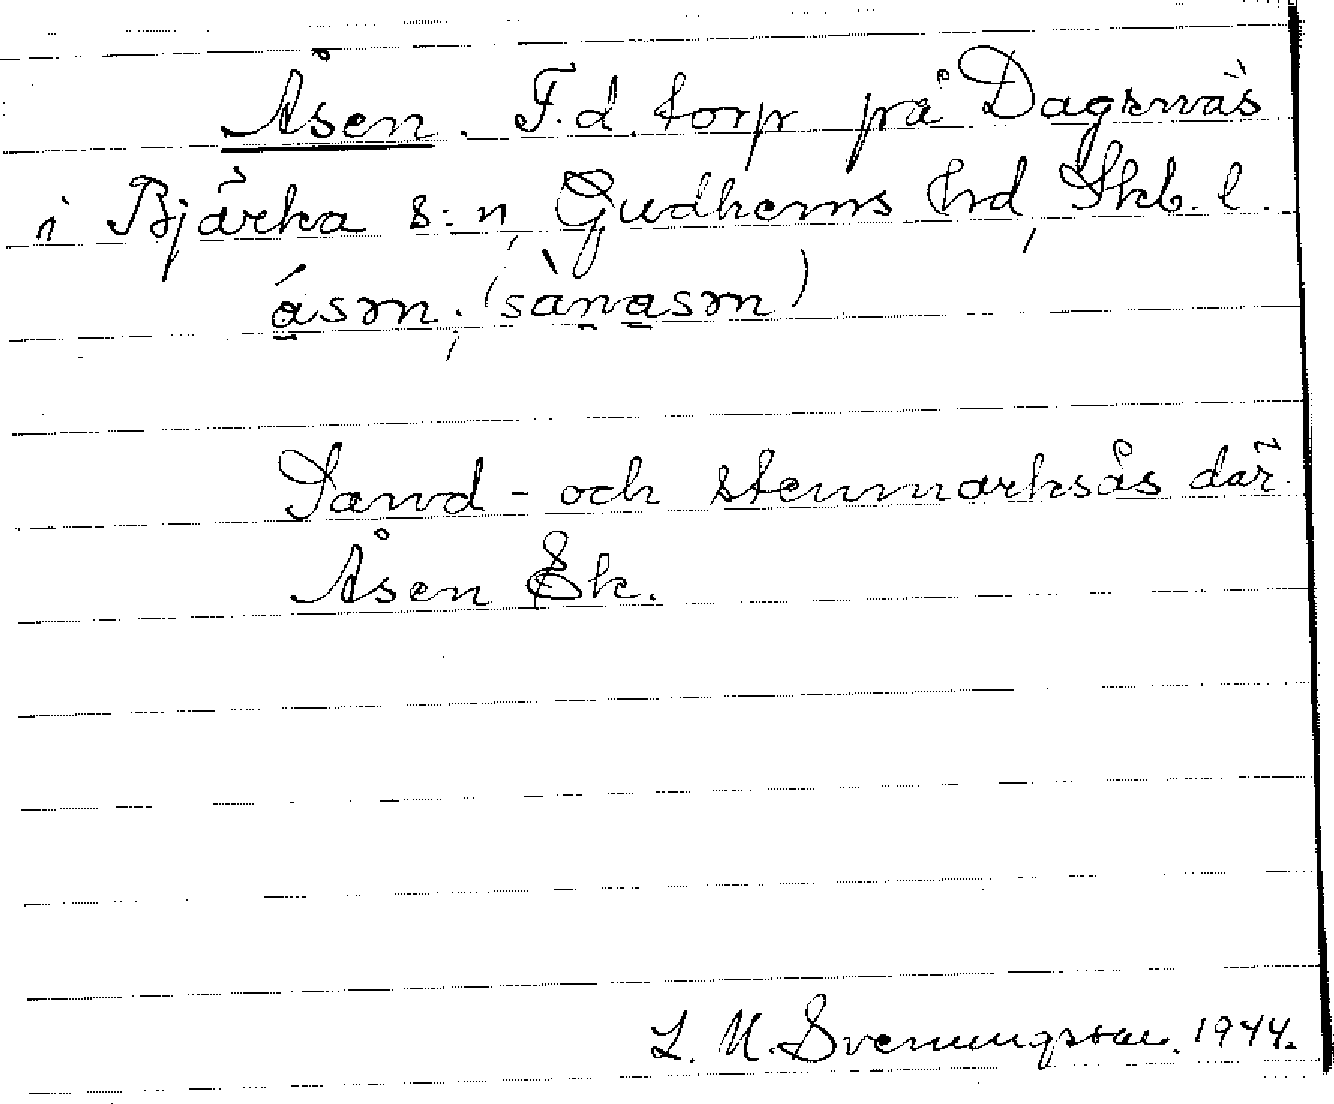 Åsen. F.d. torp på Dagsnäs
i Bjärka s:n, Gudhems hd, Skb. l.
ásən; (sànasən)
Sand- och stenmarksås där.
Åsen Ek.
L. M. Svenungsson. 1944.